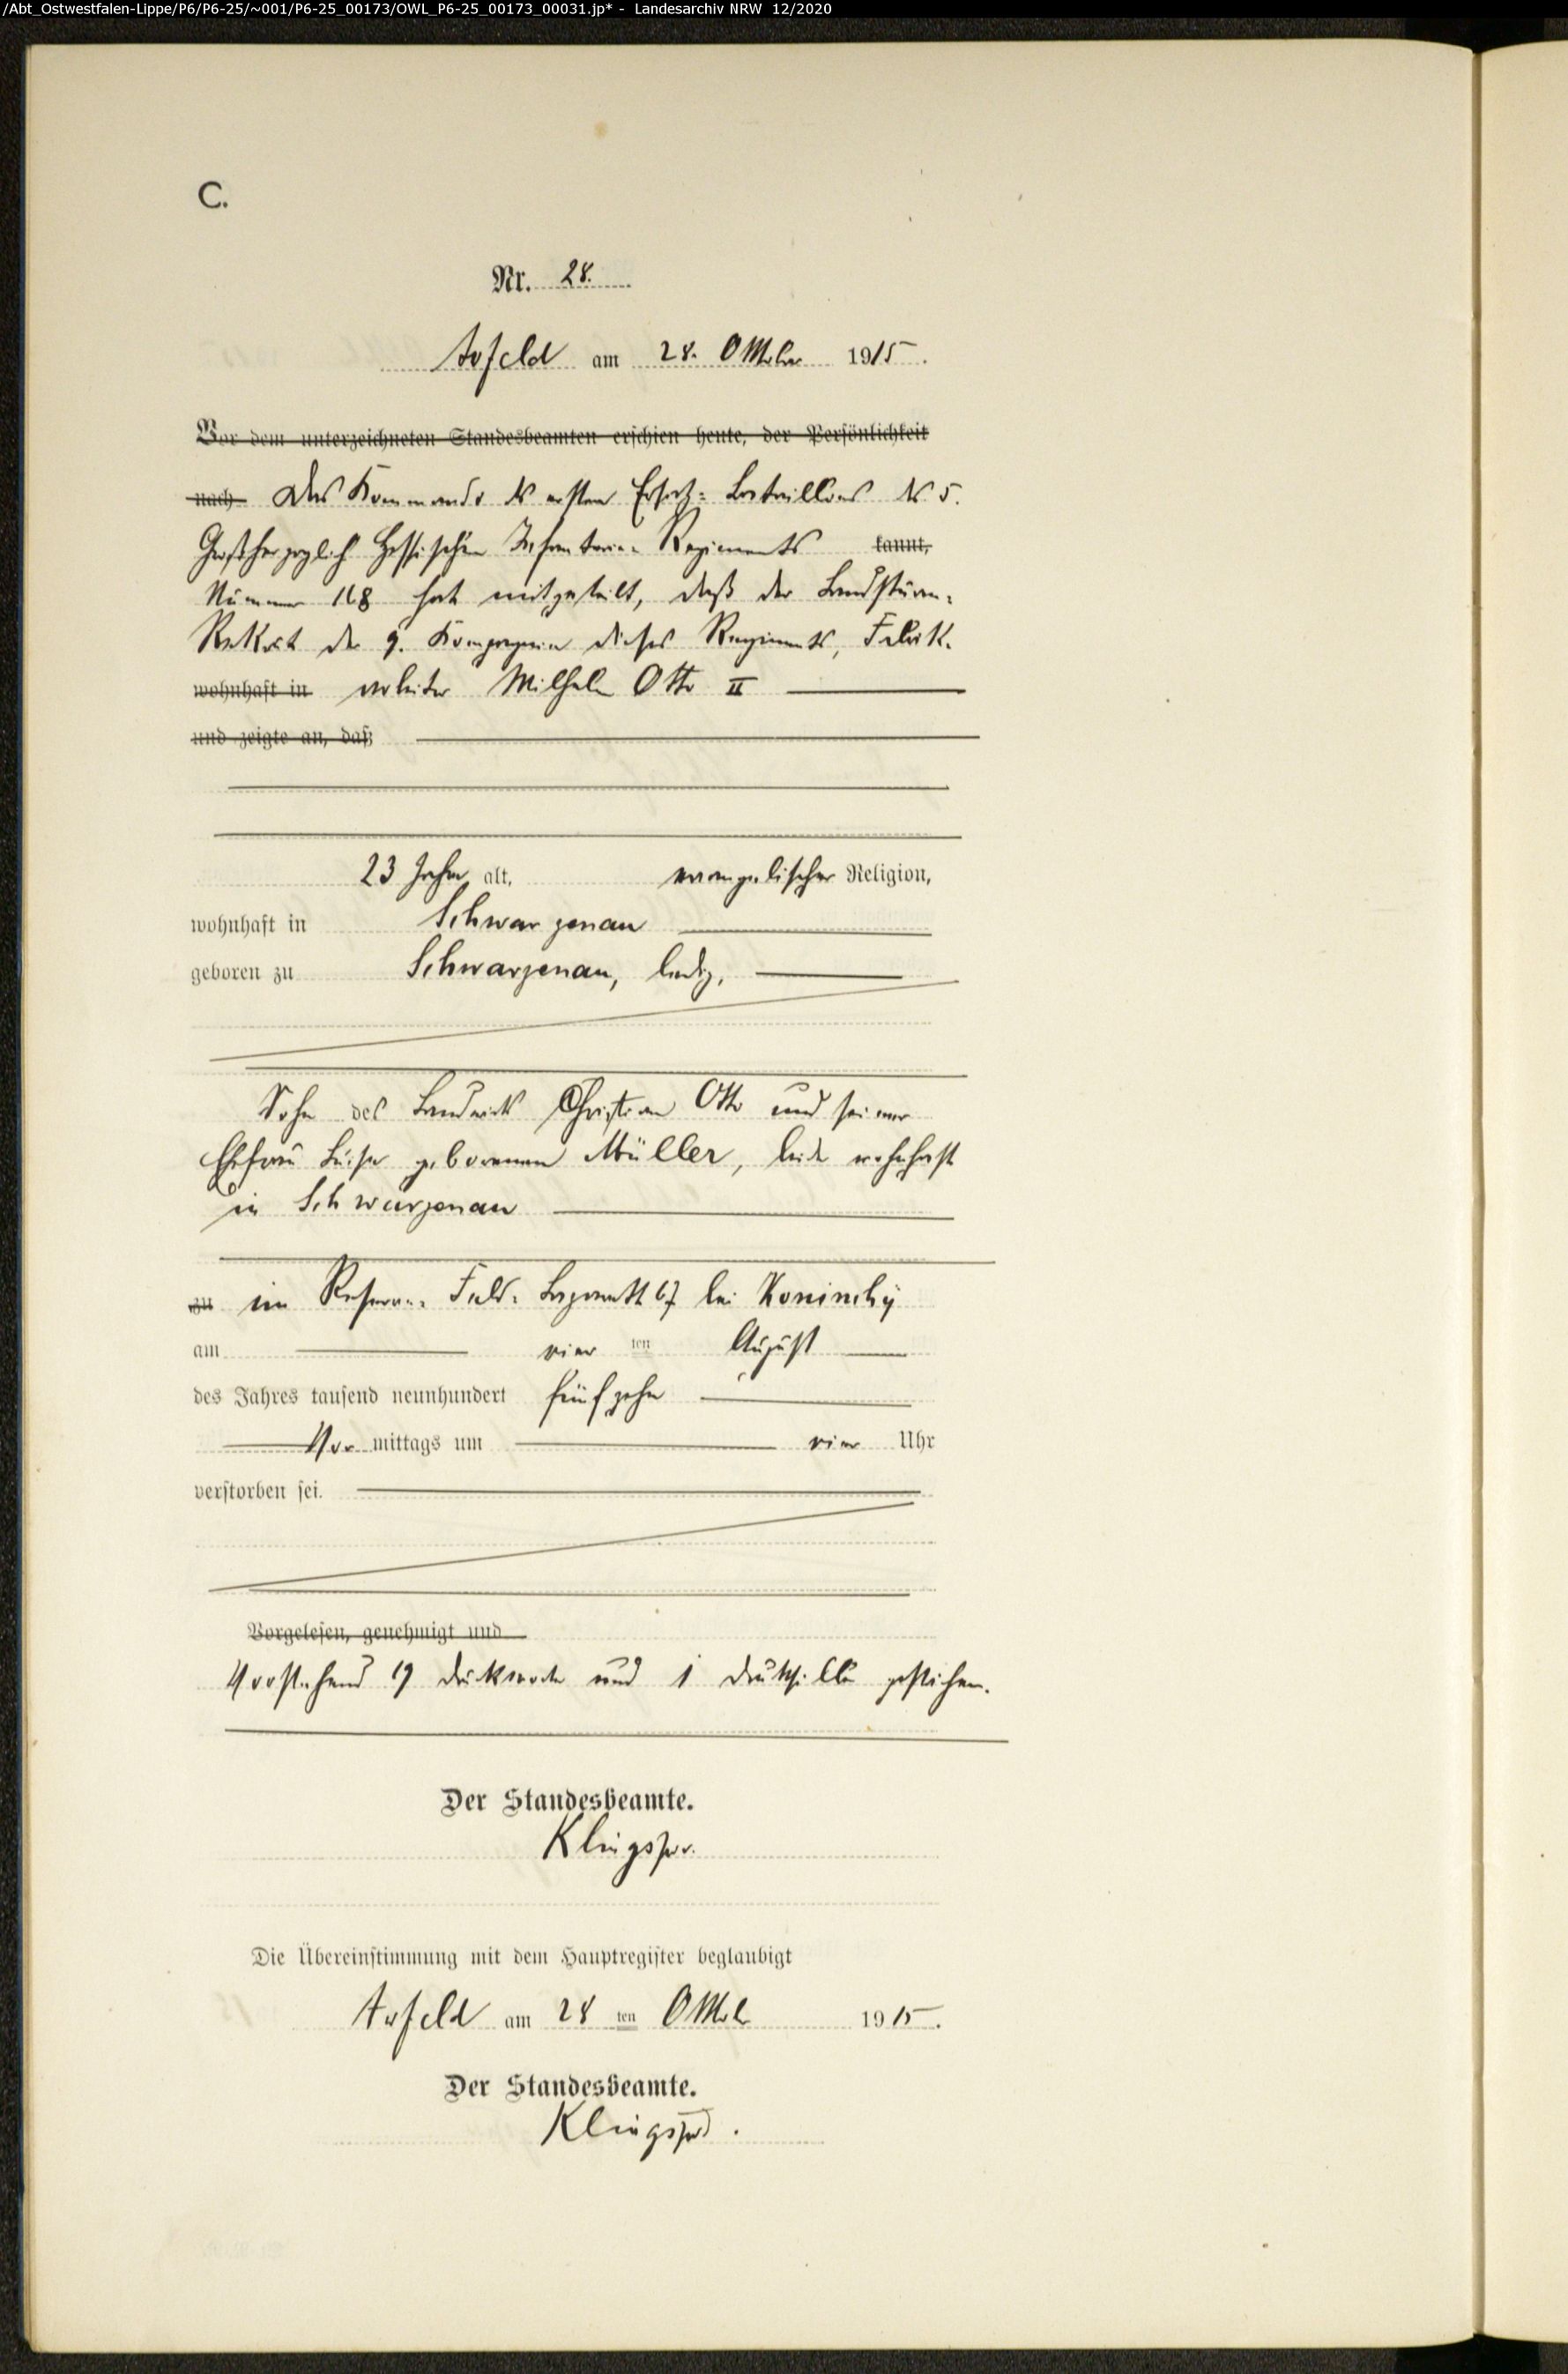 /Abt_Ostwestfalen-Lippe/P6/P6-25/~001/P6-25_00173/OWL_P6-25_00173_00031.jp* - Landesarchiv NRW 12/2020
C.
Nr. 28.
Arfeld am 28. Oktober 1915.
Vor dem unterzeichneten Standesbeamten erschien heute, der Persönlichkeit
nach Das Kommando des ersten Ersatz-Bataillons des 5.
Großherzoglich Hessischen Infanterie-Regiments kannt,
Nummer 168 hat mitgeteilt, daß der Landsturm-
Rekrut der 9. Kompagnie dieses Regiments, Fabrik-
wohnhaft in arbeiter Wilhelm Otto II
und zeigte an, daß
23 Jahre alt, evangelischer Religion,
wohnhaft in Schwarzenau
geboren zu Schwarzenau, ledig,
Sohn des Landwirts Christian Otto und seiner
Ehefrau Luise geborenen Müller, beide wohnhaft
in Schwarzenau
zu im Reserve-Feld-Lazarett 67 bei
am vier ten August
des Jahres tausend neunhundert fünfzehn
Vor mittags um vier Uhr
verstorben sei.
Vorgelesen, genehmigt und
Vorstehend 19 Druckworte und 1 Drucksilbe gestrichen.
Der Standesbeamte.
Klingspor.
Die Übereinstimmung mit dem Hauptregister beglaubigt
Arfeld am 28 ten Oktober 1915.
Der Standesbeamte.
Klingspor.